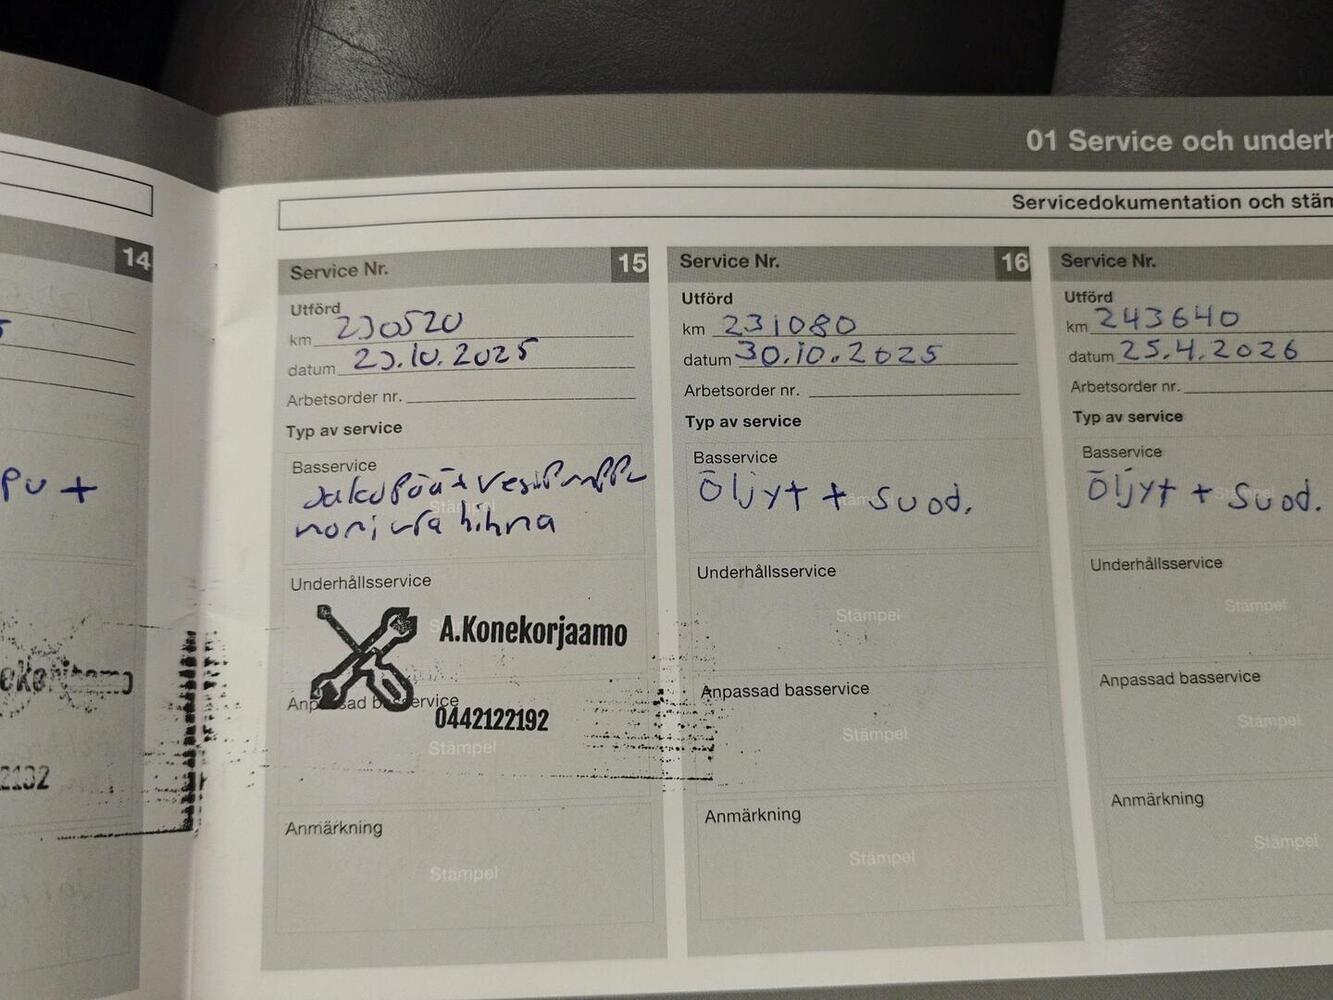 01 Service och underh
Servicedokumentation och stäm
14
pu +
Service Nr. 15
Utförd
km 230520
datum 23.10.2025
Arbetsorder nr.
Typ av service
Basservice
Jakopää + vesipumppu
moniura hihna
Underhållsservice
A.Konekorjaamo
Anpassad basservice
0442122192
Stämpel
Anmärkning
Stämpel
Service Nr. 16
Utförd
km 231080
datum 30.10.2025
Arbetsorder nr.
Typ av service
Basservice
Öljyt + Suod.
Underhållsservice
Stämpel
Anpassad basservice
Stämpel
Anmärkning
Stämpel
Service Nr.
Utförd
km 243640
datum 25.4.2026
Arbetsorder nr.
Typ av service
Basservice
Öljyt + Suod.
Underhållsservice
Stämpel
Anpassad basservice
Stämpel
Anmärkning
Stämpel